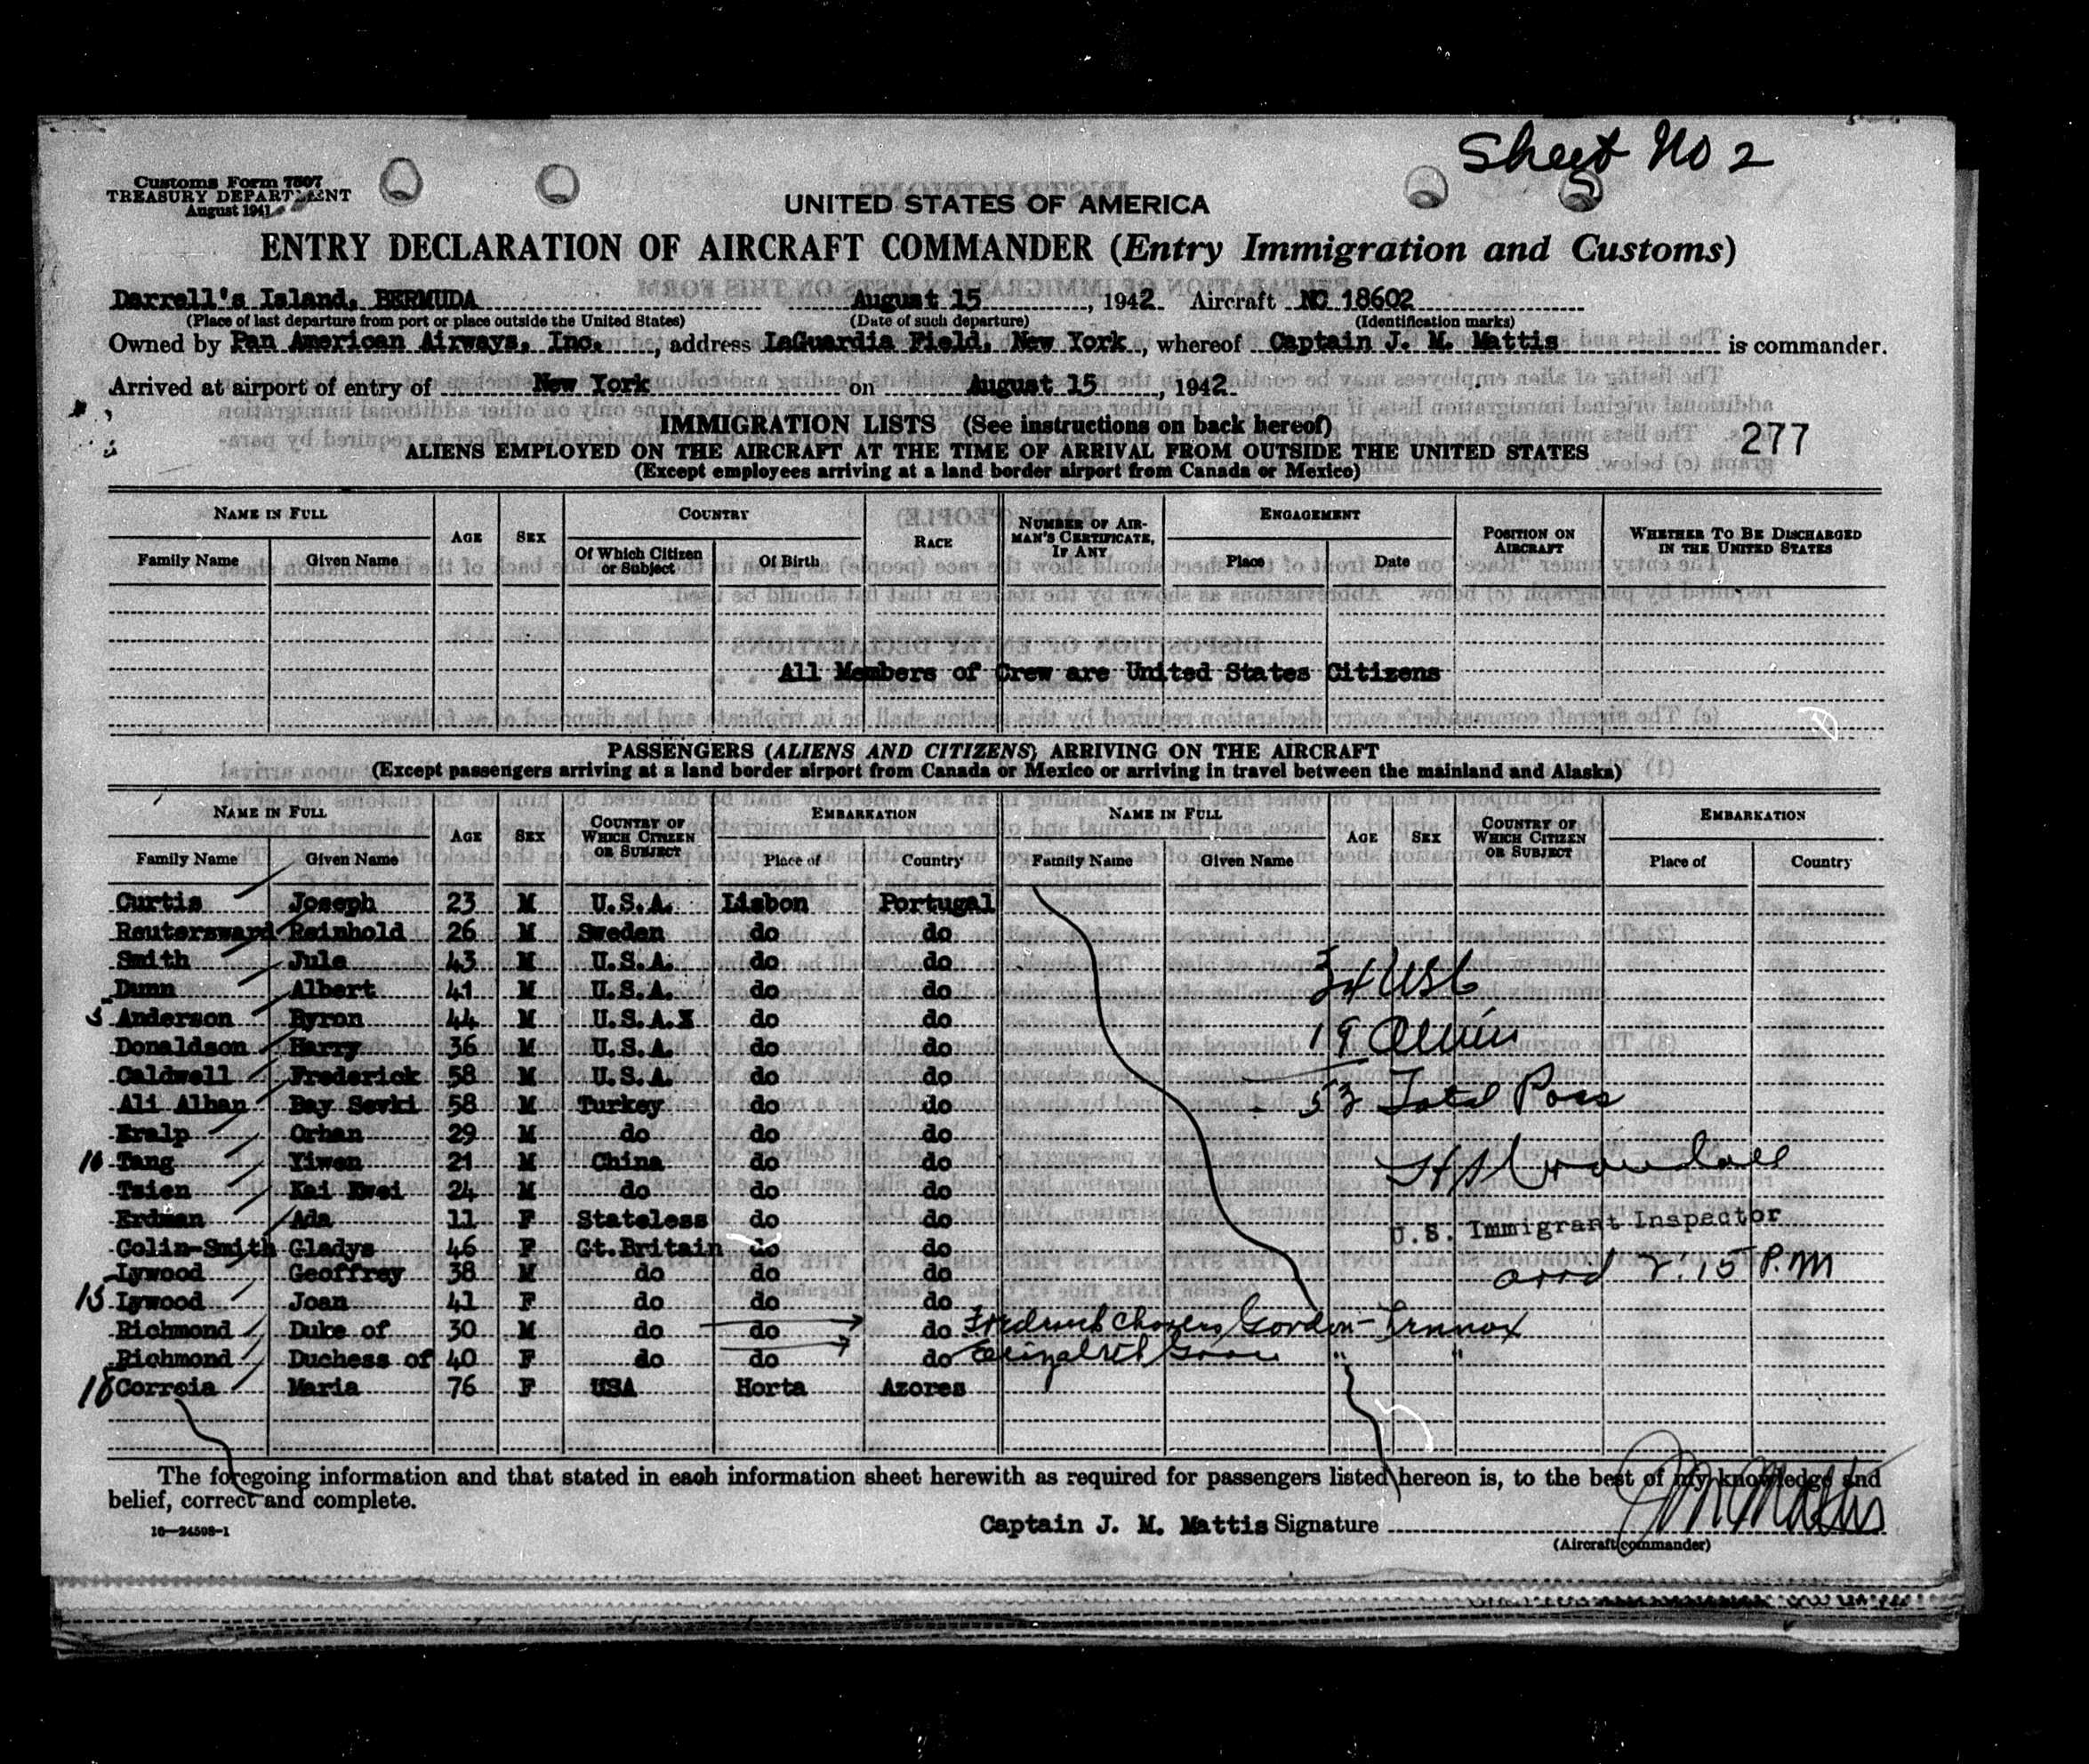 Sheet No 2
Customs Form 7507
TREASURY DEPARTMENT
August 1941
UNITED STATES OF AMERICA
ENTRY DECLARATION OF AIRCRAFT COMMANDER (Entry Immigration and Customs)
Darrell's Island, BERMUDA August 15, 1942 Aircraft NC 18602
(Place of last departure from port or place outside the United States) (Date of such departure) (Identification marks)
Owned by Pan American Airways, Inc., address LaGuardia Field, New York, whereof Captain J. M. Mattis is commander.
Arrived at airport of entry of New York on August 15, 1942
IMMIGRATION LISTS (See instructions on back hereof)
277
ALIENS EMPLOYED ON THE AIRCRAFT AT THE TIME OF ARRIVAL FROM OUTSIDE THE UNITED STATES
(Except employees arriving at a land border airport from Canada or Mexico)
NAME IN FULL AGE SEX COUNTRY RACE NUMBER OF AIRMAN'S CERTIFICATE, IF ANY ENGAGEMENT POSITION ON AIRCRAFT WHETHER TO BE DISCHARGED IN THE UNITED STATES
Family Name Given Name Of Which Citizen or Subject Of Birth Place Date
All Members of Crew are United States Citizens
PASSENGERS (ALIENS AND CITIZENS) ARRIVING ON THE AIRCRAFT
(Except passengers arriving at a land border airport from Canada or Mexico or arriving in travel between the mainland and Alaska)
NAME IN FULL AGE SEX COUNTRY OF WHICH CITIZEN OR SUBJECT EMBARKATION NAME IN FULL AGE SEX COUNTRY OF WHICH CITIZEN OR SUBJECT EMBARKATION
Family Name Given Name Place of Country Family Name Given Name Place of Country
Curtis Joseph 23 M U.S.A. Lisbon Portugal
Reutersward Reinhold 26 M Sweden do do
Smith Jule 43 M U.S.A. do do
Dunn Albert 41 M U.S.A. do do
34 USC
5 Anderson Byron 44 M U.S.A.X do do
19 Aliens
Donaldson Harry 36 M U.S.A. do do
Caldwell Frederick 58 M U.S.A. do do
Ali Alhan Bay Sevki 58 M Turkey do do
53 Total Pass
Eralp Orhan 29 M do do do
10 Tang Yiwen 21 M China do do
Tsien Kai Kwei 24 M do do do
Erdman Ada 11 F Stateless do do
U.S. Immigrant Inspector
Colin-Smith Gladys 46 F Gt.Britain do do
Lywood Geoffrey 38 M do do do
arrd 2:15 P.M
15 Lywood Joan 41 F do do do
Richmond Duke of 30 M do do do Frederick Charles Gordon-Lennox
Richmond Duchess of 40 F do do do Elizabeth Grace " "
18 Correia Maria 76 F USA Horta Azores
The foregoing information and that stated in each information sheet herewith as required for passengers listed hereon is, to the best of my knowledge and
belief, correct and complete.
16—24508-1
Captain J. M. Mattis Signature JM Mattis
(Aircraft commander)